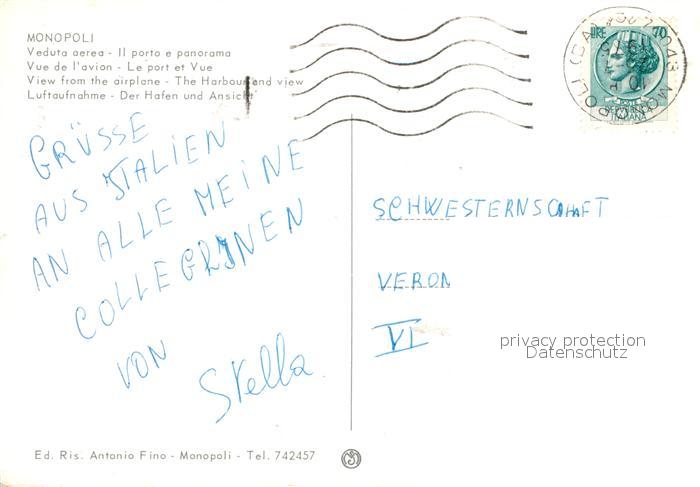 MONOPOLI
Veduta aerea - Il porto e panorama
Vue de l'avion - Le port et Vue
View from the airplane - The Harbour and view
Luftaufnahme - Der Hafen und Ansicht
LIRE 70
POSTE
ITALIANA
GRÜSSE
AUS ITALIEN
AN ALLE MEINE
COLLEGRINEN
VON
Stella
SCHWESTERNSCHAFT
VERON
VI
privacy protection
Datenschutz
Ed. Ris. Antonio Fino - Monopoli - Tel. 742457